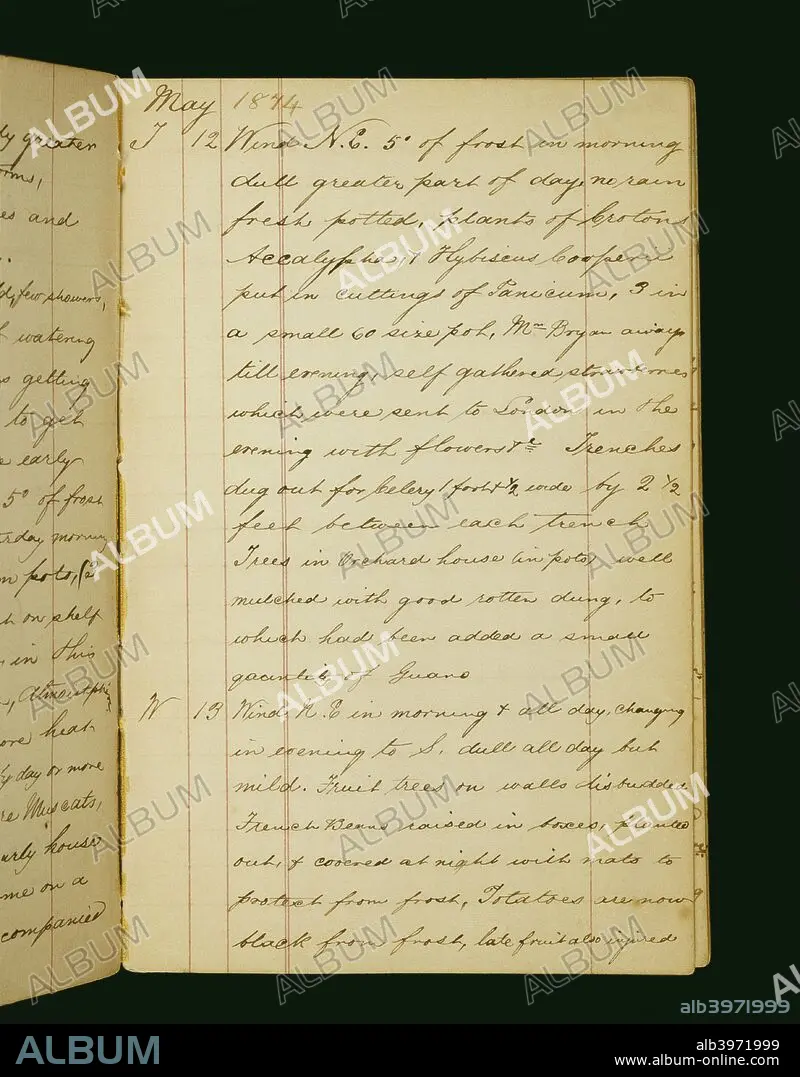 May 1874
T 12 Wind N.E. 5° of frost in morning
dull greater part of day, no rain
fresh potted, plants of Crotons
Accalypha, & Hybiscus Cooperii
put in cuttings of Panicum, 3 in
a small 60 size pot, Mr Bryan away
till evening, self gathered strawberries
which were sent to London in the
evening with flowers &c Trenches
dug out for Celery 1 foot & ½ wide by 2 ½
feet between each trench
Trees in Orchard house (in pots) well
mulched with good rotten dung, to
which had been added a small
of Guano
W 13 Wind N.E in morning & all day, changing
in evening to S, dull all day but
mild. Fruit trees on walls disbudded
French Beans raised in boxes, planted
out, & coovered at night with mats to
protect from frost, Potatoes are now
black from frost, late fruit also injured
ly greater
orms,
es and
d, few showers,
f watering
s getting
to get
e early
5° of frost
urday morning
n pots, (2
t on shelf
, in this
, almost
ore heat
y day or more
re Muscats,
arly house
me on a
companied
ALBUM
alb3971999
ALBUM
alb3971999
www.album-online.com